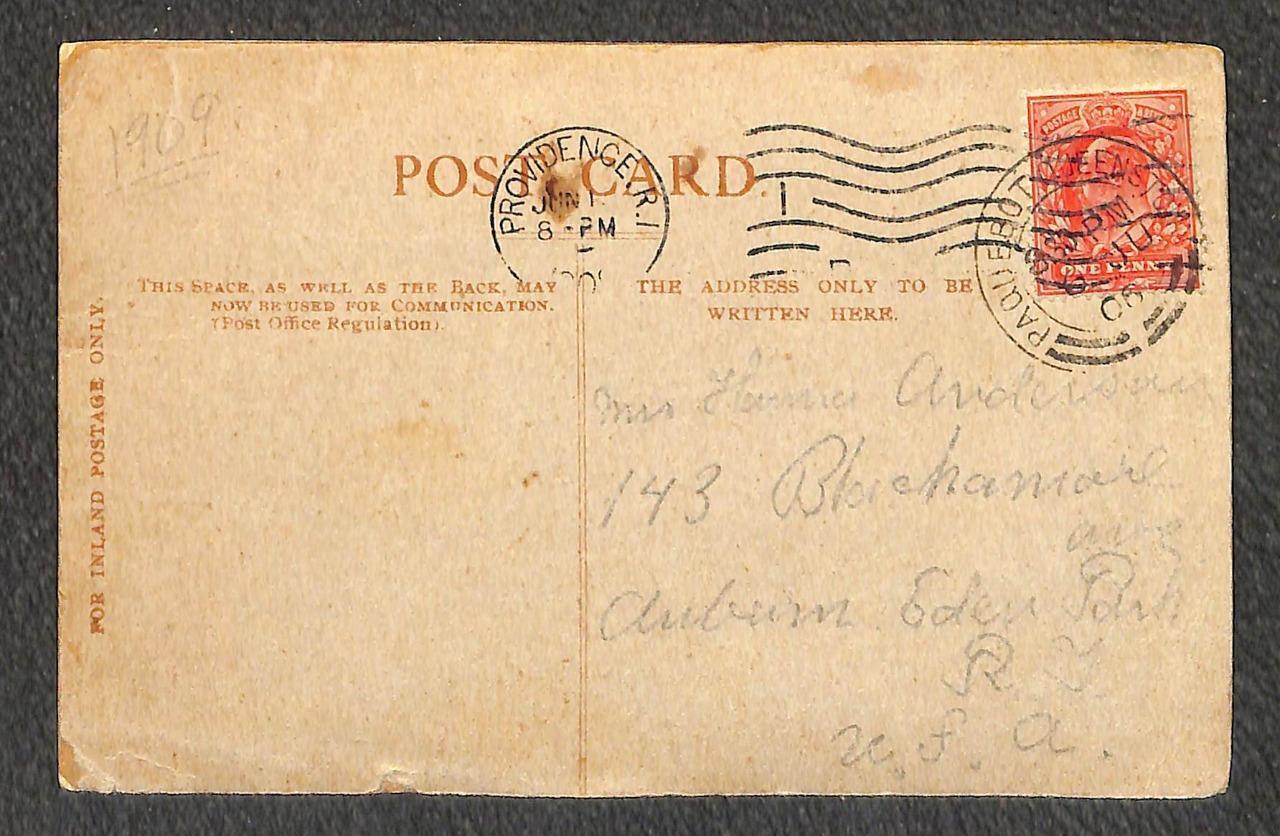 1909
POST CARD.
PROVIDENCE, R.I.
JUN 1
8 - PM
POSTAGE
ONE PENNY
PAQUEBOT
QUEENSTO
PM
JU
THIS SPACE, AS WELL AS THE BACK, MAY
NOW BE USED FOR COMMUNICATION.
(Post Office Regulation).
THE ADDRESS ONLY TO BE
WRITTEN HERE.
FOR INLAND POSTAGE ONLY.
Mrs Hanna Anderson
143
ave
Auburn Eden Park
R I.
U. S. A.